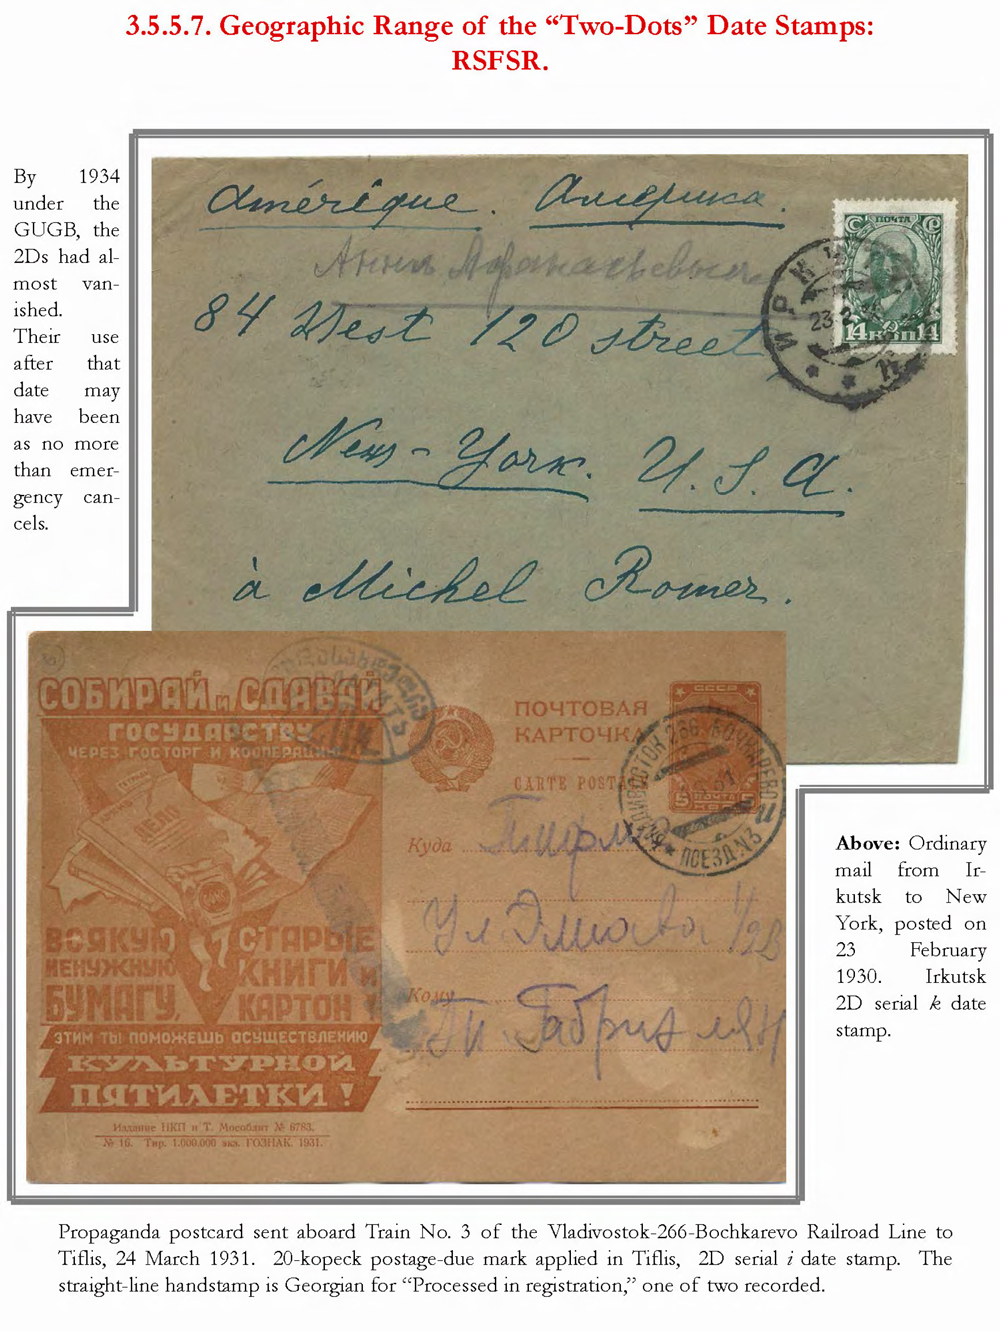 3.5.5.7. Geographic Range of the “Two-Dots” Date Stamps:
RSFSR.
By 1934
under the
GUGB, the
2Ds had al-
most van-
ished.
Their use
after that
date may
have been
as no more
than emer-
gency can-
cels.
Amérique. Америка.
84 West 120 street
New-York. U.S.A.
à Michel Romer.
ПОЧТА
14 КОП 14
23
СОБИРАЙ и СДАВАЙ
ГОСУДАРСТВУ
ЧЕРЕЗ ГОСТОРГ И КООПЕРАЦИЮ
ДЕЛО
ВСЯКУЮ
НЕНУЖНУЮ
БУМАГУ,
СТАРЫЕ
КНИГИ и
КАРТОН
ЭТИМ ТЫ ПОМОЖЕШЬ ОСУЩЕСТВЛЕНИЮ
КУЛЬТУРНОЙ
ПЯТИЛЕТКИ!
Издание НКП и Т. Мособлит № 6783.
№ 16. Тир. 1.000.000 экз. ГОЗНАК. 1931.
ПОЧТОВАЯ
КАРТОЧКА
CARTE POSTALE
СССР
ВЛАДИВОСТОК 266 БОЧКАРЕВО
ПОЕЗД №3
Куда
Ул
Кому
Above: Ordinary
mail from Ir-
kutsk to New
York, posted on
23 February
1930. Irkutsk
2D serial k date
stamp.
Propaganda postcard sent aboard Train No. 3 of the Vladivostok-266-Bochkarevo Railroad Line to
Tiflis, 24 March 1931. 20-kopeck postage-due mark applied in Tiflis, 2D serial i date stamp. The
straight-line handstamp is Georgian for “Processed in registration,” one of two recorded.